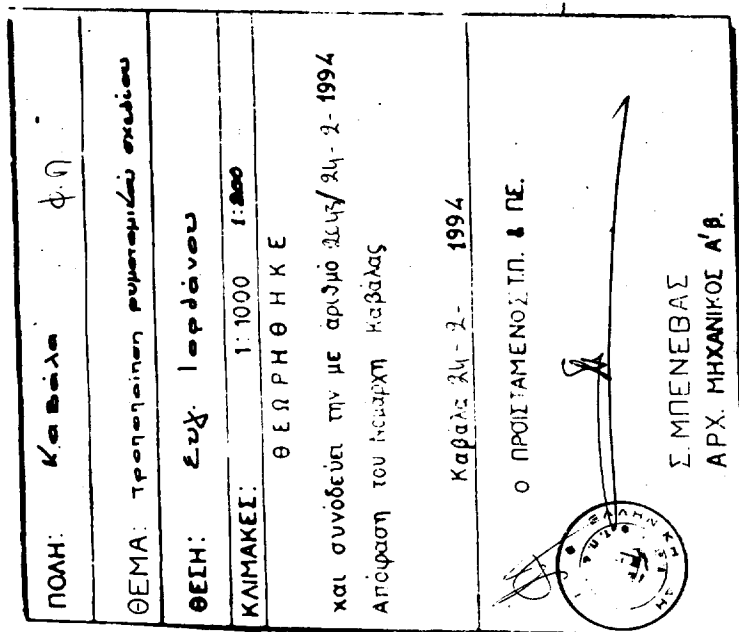 ΠΟΛΗ: Καβάλα φ.π
ΘΕΜΑ: Τροποποίηση ρυμοτομικού σχεδίου
ΘΕΣΗ: Συχ. Ιορδάνου
ΚΛΙΜΑΚΕΣ: 1:1000 1:200
ΘΕΩΡΗΘΗΚΕ
και συνοδεύει την με αριθμό 2043/24-2-1994
Απόφαση του Νομάρχη Καβάλας
Καβάλα 24-2- 1994
Ο ΠΡΟΙΣΤΑΜΕΝΟΣ Τ.Π. & ΠΕ.
ΕΛΛΗΝΙΚΗ
Σ. ΜΠΕΝΕΒΑΣ
ΑΡΧ. ΜΗΧΑΝΙΚΟΣ Α'β.